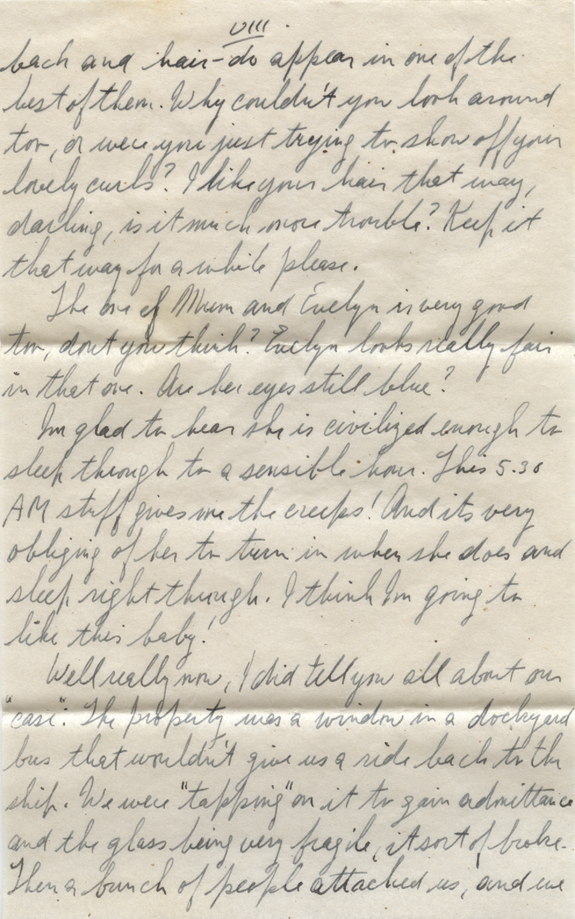 VIII.
back and hair-do appear in one of the
best of them. Why couldn't you look around
too, or were you just trying to show off your
lovely curls? I like your hair that way,
darling, is it much more trouble? Keep it
that way for a while please.
The one of Mum and Evelyn is very good
too, dont you think? Evelyn looks really fair
in that one. Are her eyes still blue?
Im glad to hear she is civilized enough to
sleep through to a sensible hour. This 5.30
AM stuff gives me the creeps! And its very
obliging of her to turn in when she does and
sleep right through. I think Im going to
like this baby!
Well really now, I did tell you all about our
"case". The property was a window in a dockyard
bus that wouldn't give us a ride back to the
ship. We were "tapping" on it to gain admittance
and the glass being very fragile, it sort of broke.
Then a bunch of people attacked us, and we